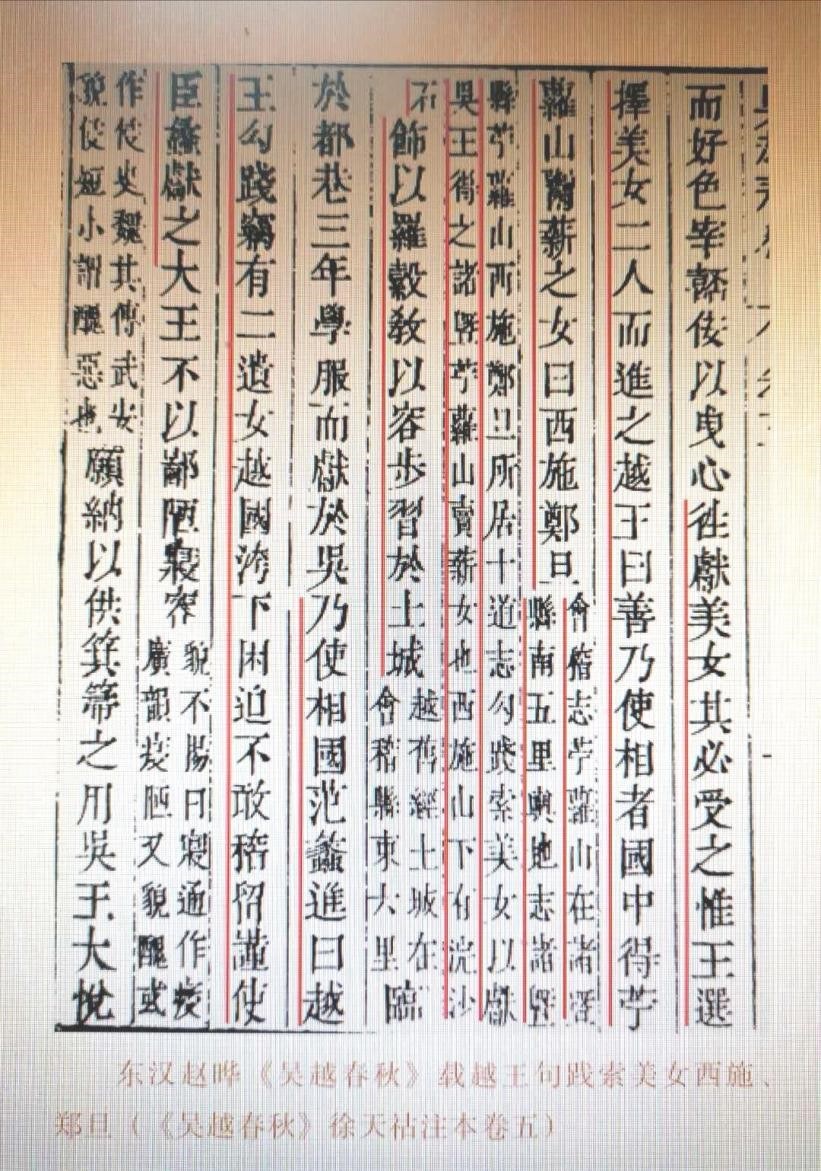 而好色宰嚭佞以曳心往獻美女其必受之惟王選
擇美女二人而進之越王曰善乃使相者國中得苧
蘿山鬻薪之女曰西施鄭旦
會稽志苧蘿山在諸暨
縣南五里輿地志諸暨
縣苧蘿山西施鄭旦所居十道志勾踐索美女以獻
吳王得之諸暨苧蘿山賣薪女也西施山下有浣沙
石
飾以羅縠教以容步習於土城
越舊經土城在
會稽縣東六里
臨
於都巷三年學服而獻於吳乃使相國范蠡進曰越
王勾踐竊有二遺女越國洿下困迫不敢稽留謹使
臣蠡獻之大王不以鄙陋寢容
貌不陽曰寢通作
廣韻陋又貌醜或
作侵史魏其傳武安
貌侵短小謂醜惡也
願納以供箕箒之用吳王大悅
东汉赵晔《吴越春秋》载越王句践索美女西施、
郑旦（《吴越春秋》徐天祜注本卷五）